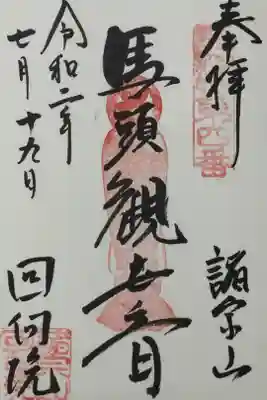 奉拝
諸宗山
馬頭觀世音
令和二年
七月十九日
回向院